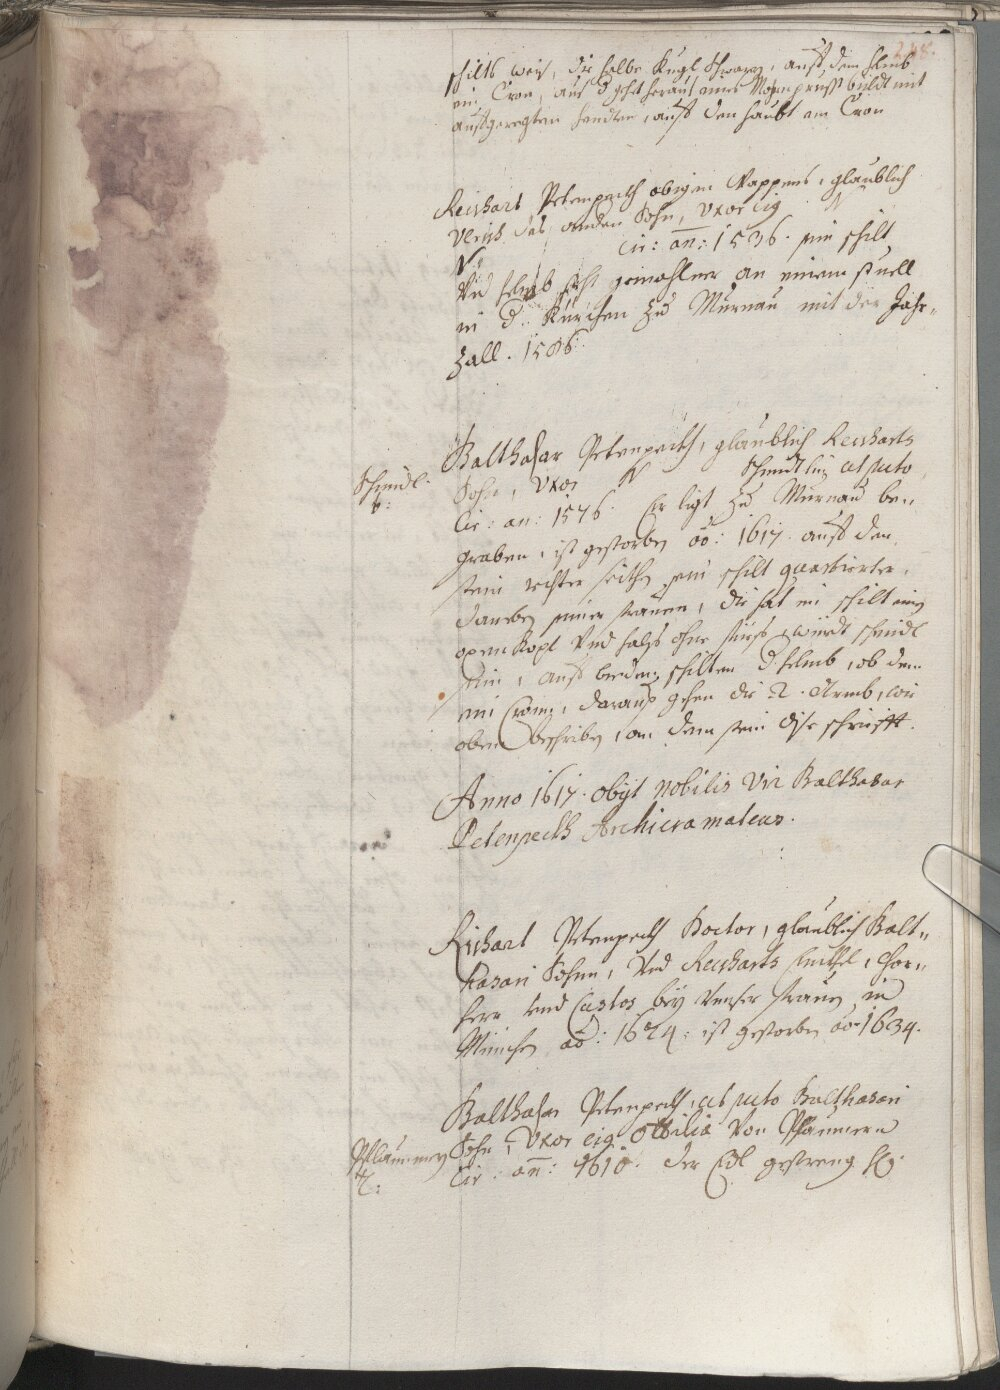 schilts weis, die halbe Kugl schwarz, auff dem helmb
ein Cron, aus d geht heraus eines Mohren prust bildt mit
aufgeregten handten, auff den haubt ein Cron
Reichart Petenpeckh obigen Wappens, glaublich
Ulrich das andern Sohn, Uxor eig
N:
Cir: an: 1536. sein schilt
Und helmb steht gemahlner an einem stuell
in d. Kürchen zu Murnau mit der Jahr„
zall. 1586.
Balthasar Petenpeckh, glaublich Reicharts
Sohn, Uxor N Schmidlin ut puto
Schmidl.
Cir: an: 1576. Er ligt zu Murnau be„
graben, ist gestorben ao: 1617. auff dem
stein rechter seithen sein schilt quartierter,
daneben seiner frauen, die hat im schilt ein
open Kopf Und halß ohne, würdt Schmidl
sein, auff beeden schilten d helmb, ob dem
ein Cron, daraus gehen die 2. Armb, wie
oben beschriben, an dem stein dise schrifft.
Anno 1617. obijt nobilis Vir Balthasar
Petenpeckh
Richart Petenpeckh Doctor, glaublich Balt„
hasari Sohn, Und Reicharts Enickhl, Chor„
herr und Custos bey Unser frauen in
München ao: 1624: ist gestorben ao 1634.
Balthasar Petenpeckh, ut puto Balthasari
Sohn, Uxor eig Ottilia Von Pflaumern
Pflaumern
Cir: an: 1610. der Edl gestreng H: